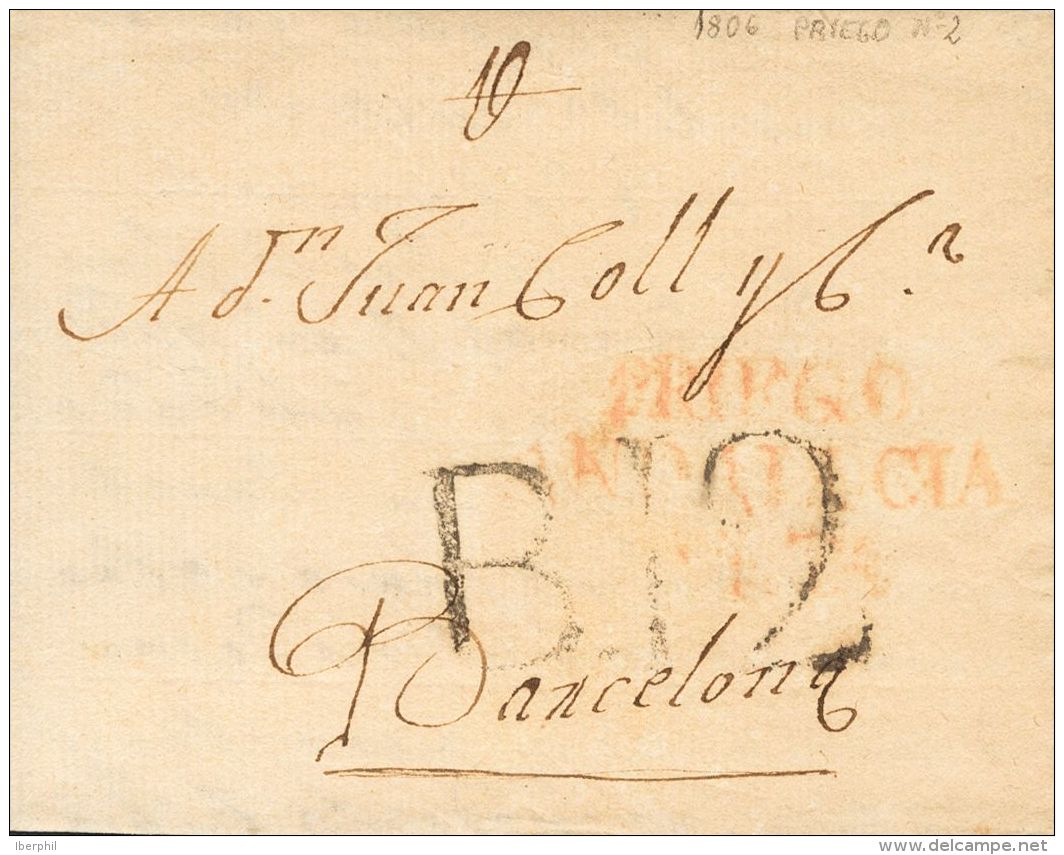 1806 PRIEGO Nº 2
10
A d.ⁿ Juan Coll y C.ª
PRIEGO
ANDALUCIA
B.12
Barcelona
Iberphil
delcampe.net